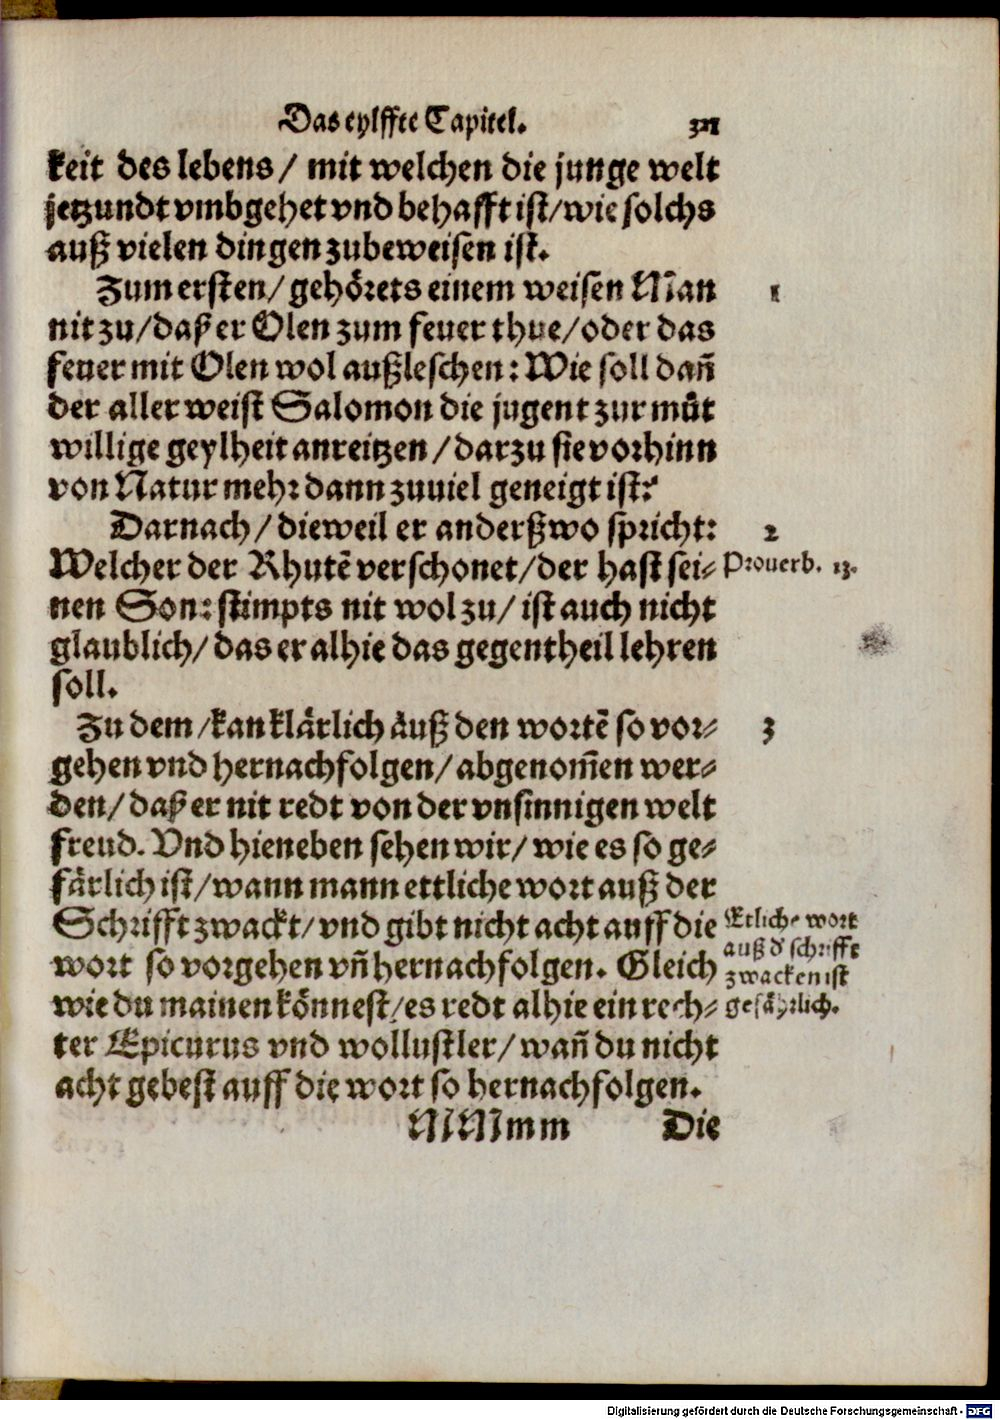 Das eylffte Capitel. 321
keit des lebens/ mit welchen die junge welt
jetzundt vmbgehet vnd behafft ist/wie solchs
auß vielen dingen zubeweisen ist.
Zum ersten/ gehörets einem weisen Man 1
nit zu/daß er Olen zum feuer thue/oder das
feuer mit Olen wol außleschen: Wie soll dañ
der aller weist Salomon die jugent zur můt
willige geylheit anreitzen/darzu sie vorhinn
von Natur mehr dann zuuiel geneigt ist?
Darnach/ dieweil er anderßwo spricht: 2
Welcher der Rhutē verschonet/der hast sei⸗ Prouerb. 13.
nen Son: stimpts nit wol zu/ ist auch nicht
glaublich/ das er alhie das gegentheil lehren
soll.
Zu dem/kan klärlich auß den wortē so vor⸗ 3
gehen vnd hernachfolgen/ abgenom̃en wer⸗
den/ daß er nit redt von der vnsinnigen welt
freud. Vnd hieneben sehen wir/ wie es so ge⸗
färlich ist/wann mann ettliche wort auß der
Schrifft zwackt/ vnd gibt nicht acht auff die
wort so vorgehen vñ hernachfolgen. Gleich
wie du mainen könnest/es redt alhie ein rech⸗
ter Epicurus vnd wollustler/ wañ du nicht
acht gebest auff die wort so hernachfolgen.
Etliche wort
auß d' schrifft
zwacken ist
gefährlich.
MMmm Die
Digitalisierung gefördert durch die Deutsche Forschungsgemeinschaft - DFG